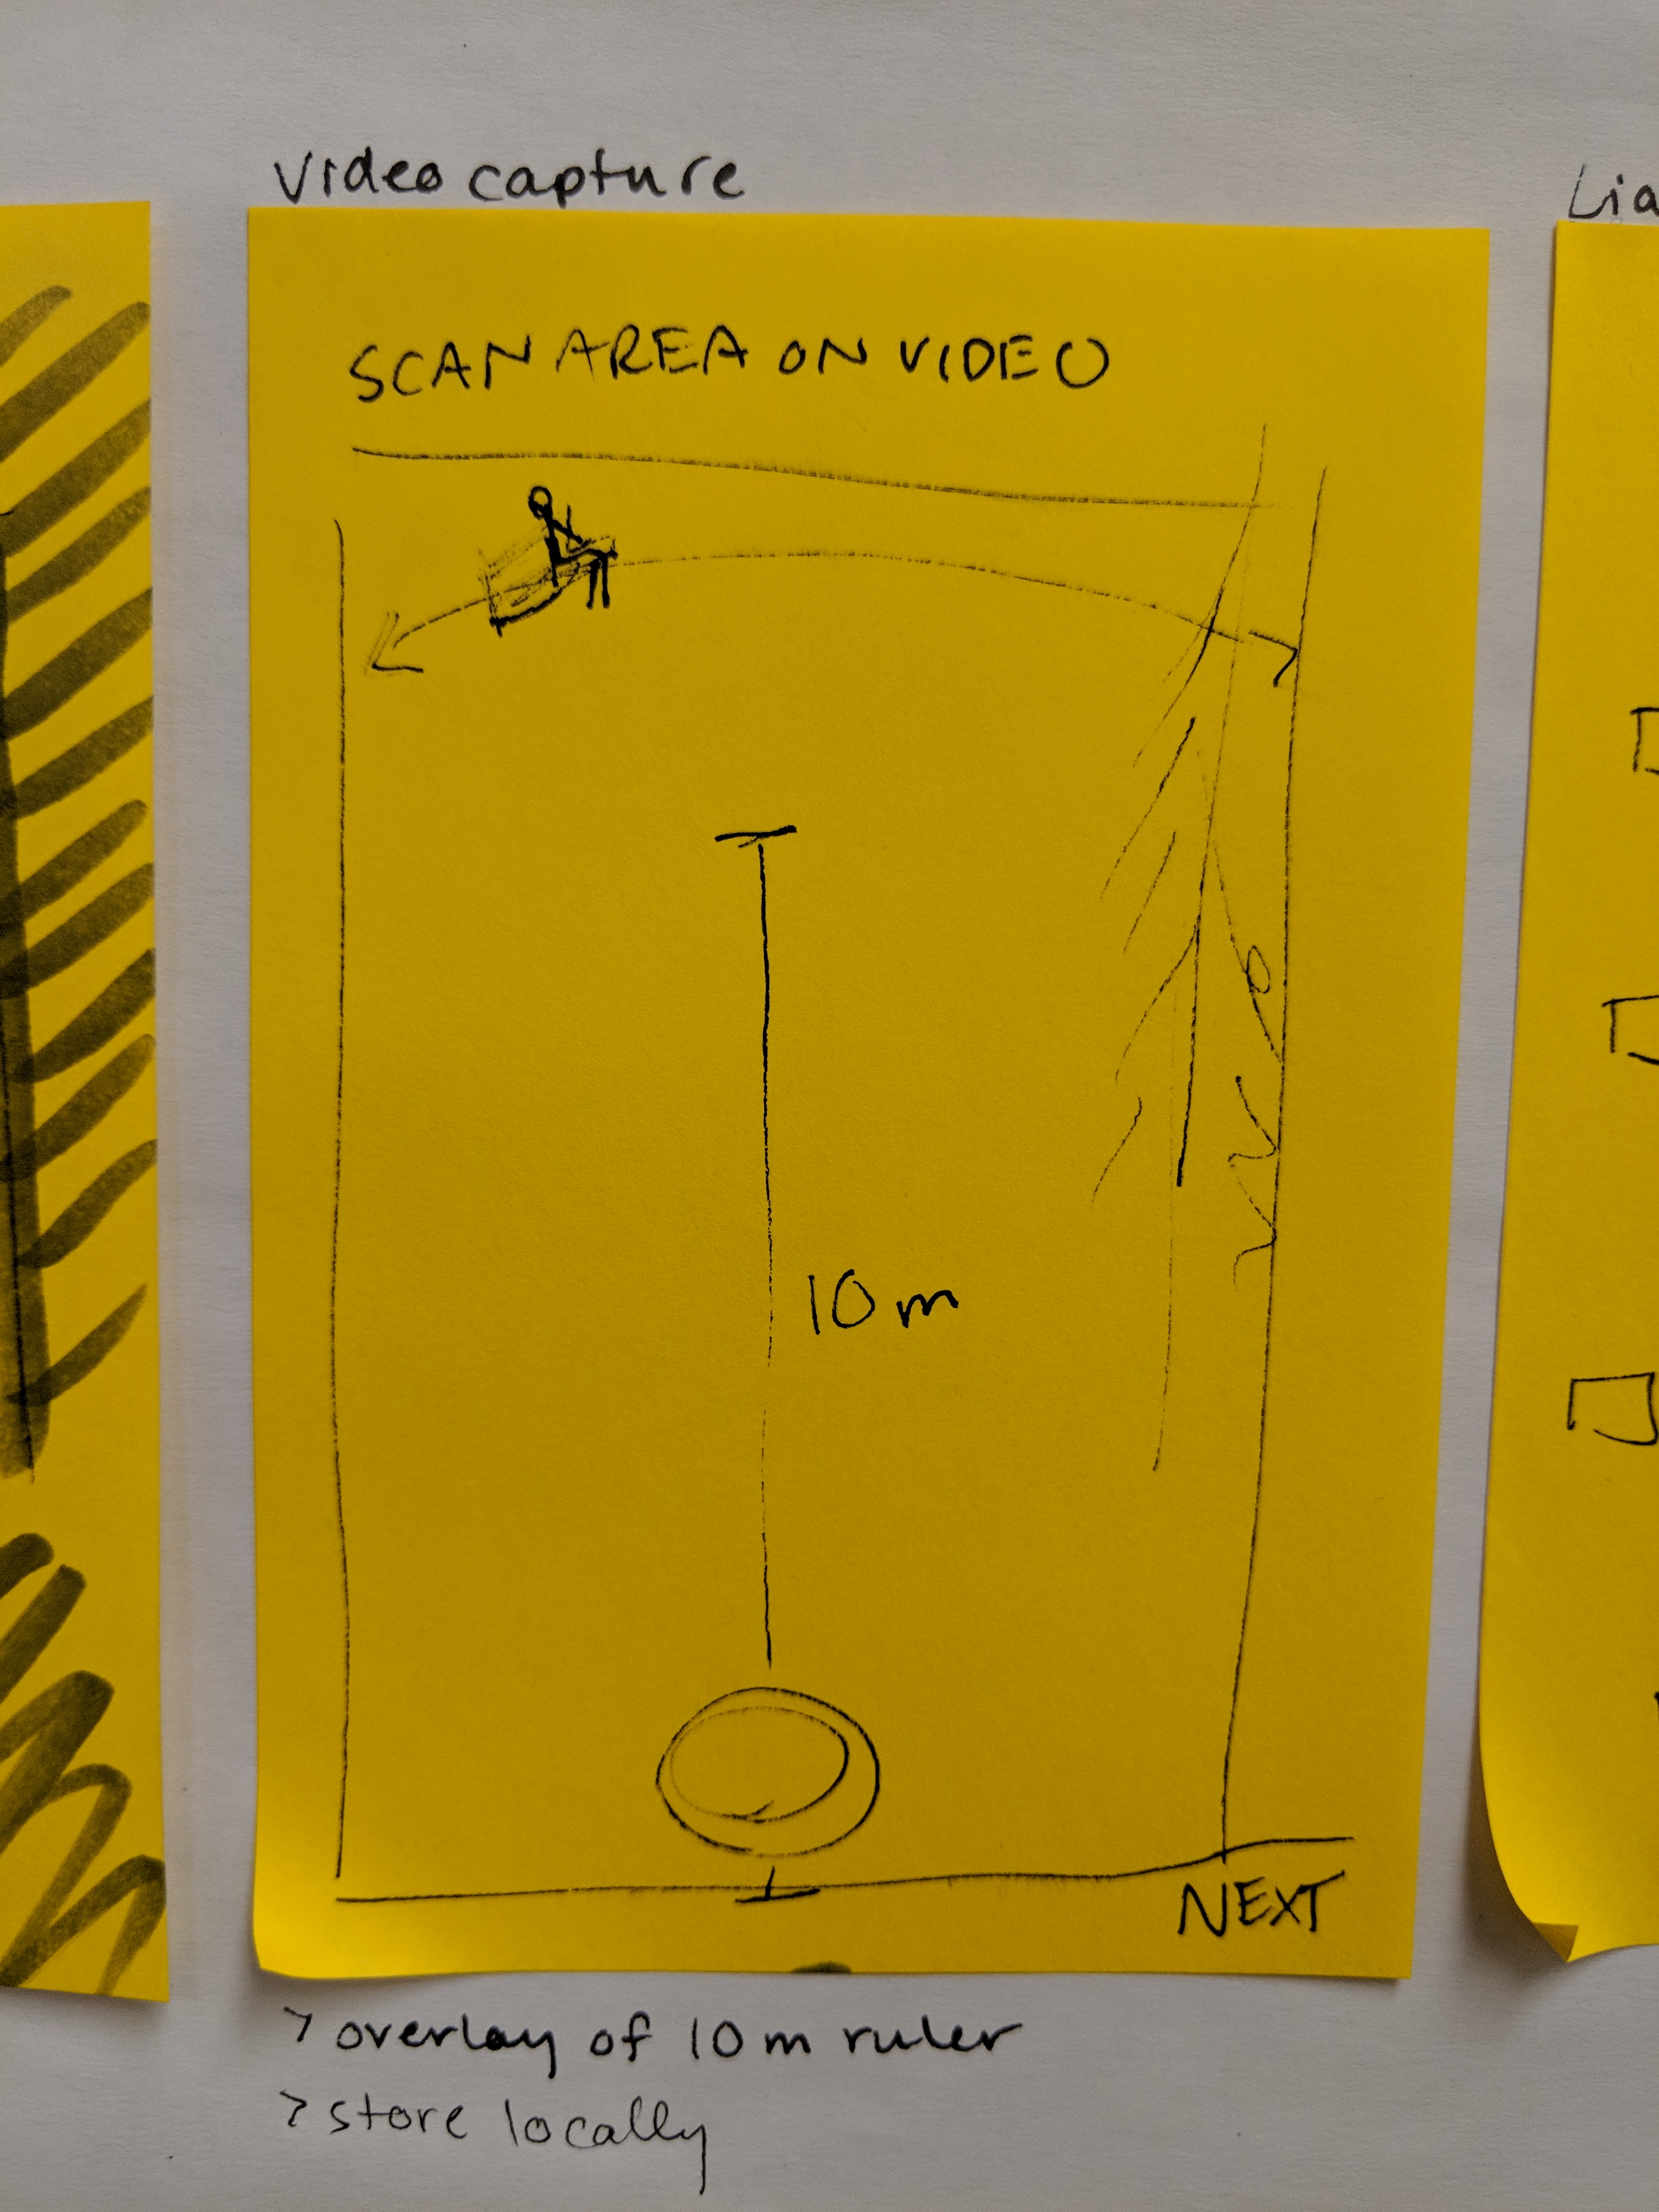 Video capture
Lia
SCAN AREA ON VIDEO
10m
NEXT
> overlay of 10m ruler
> store locally